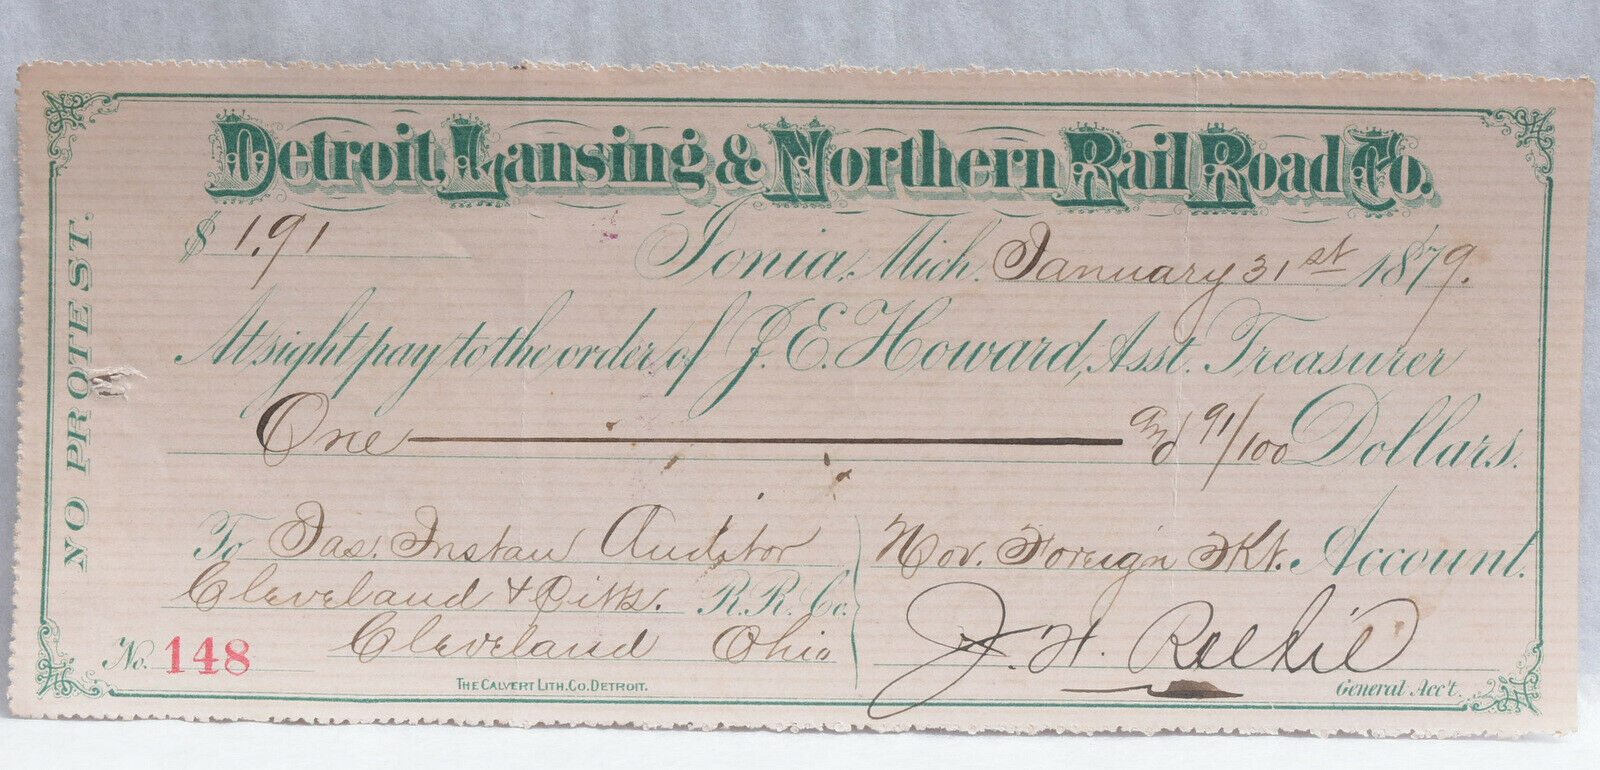 Detroit, Lansing & Northern Rail Road Co.
$ 1.91 Ionia, Mich. January 31st 1879.
At sight pay to the order of J. E. Howard, Asst. Treasurer
One and 91/100 Dollars.
To Jas. Instan Auditor
Cleveland & Pitts. R. R. Co.
Cleveland Ohio
Nov. Foreign Tkt. Account.
J. H. Reekie
General Acc't.
No. 148
THE CALVERT LITH. CO. DETROIT.
NO PROTEST.